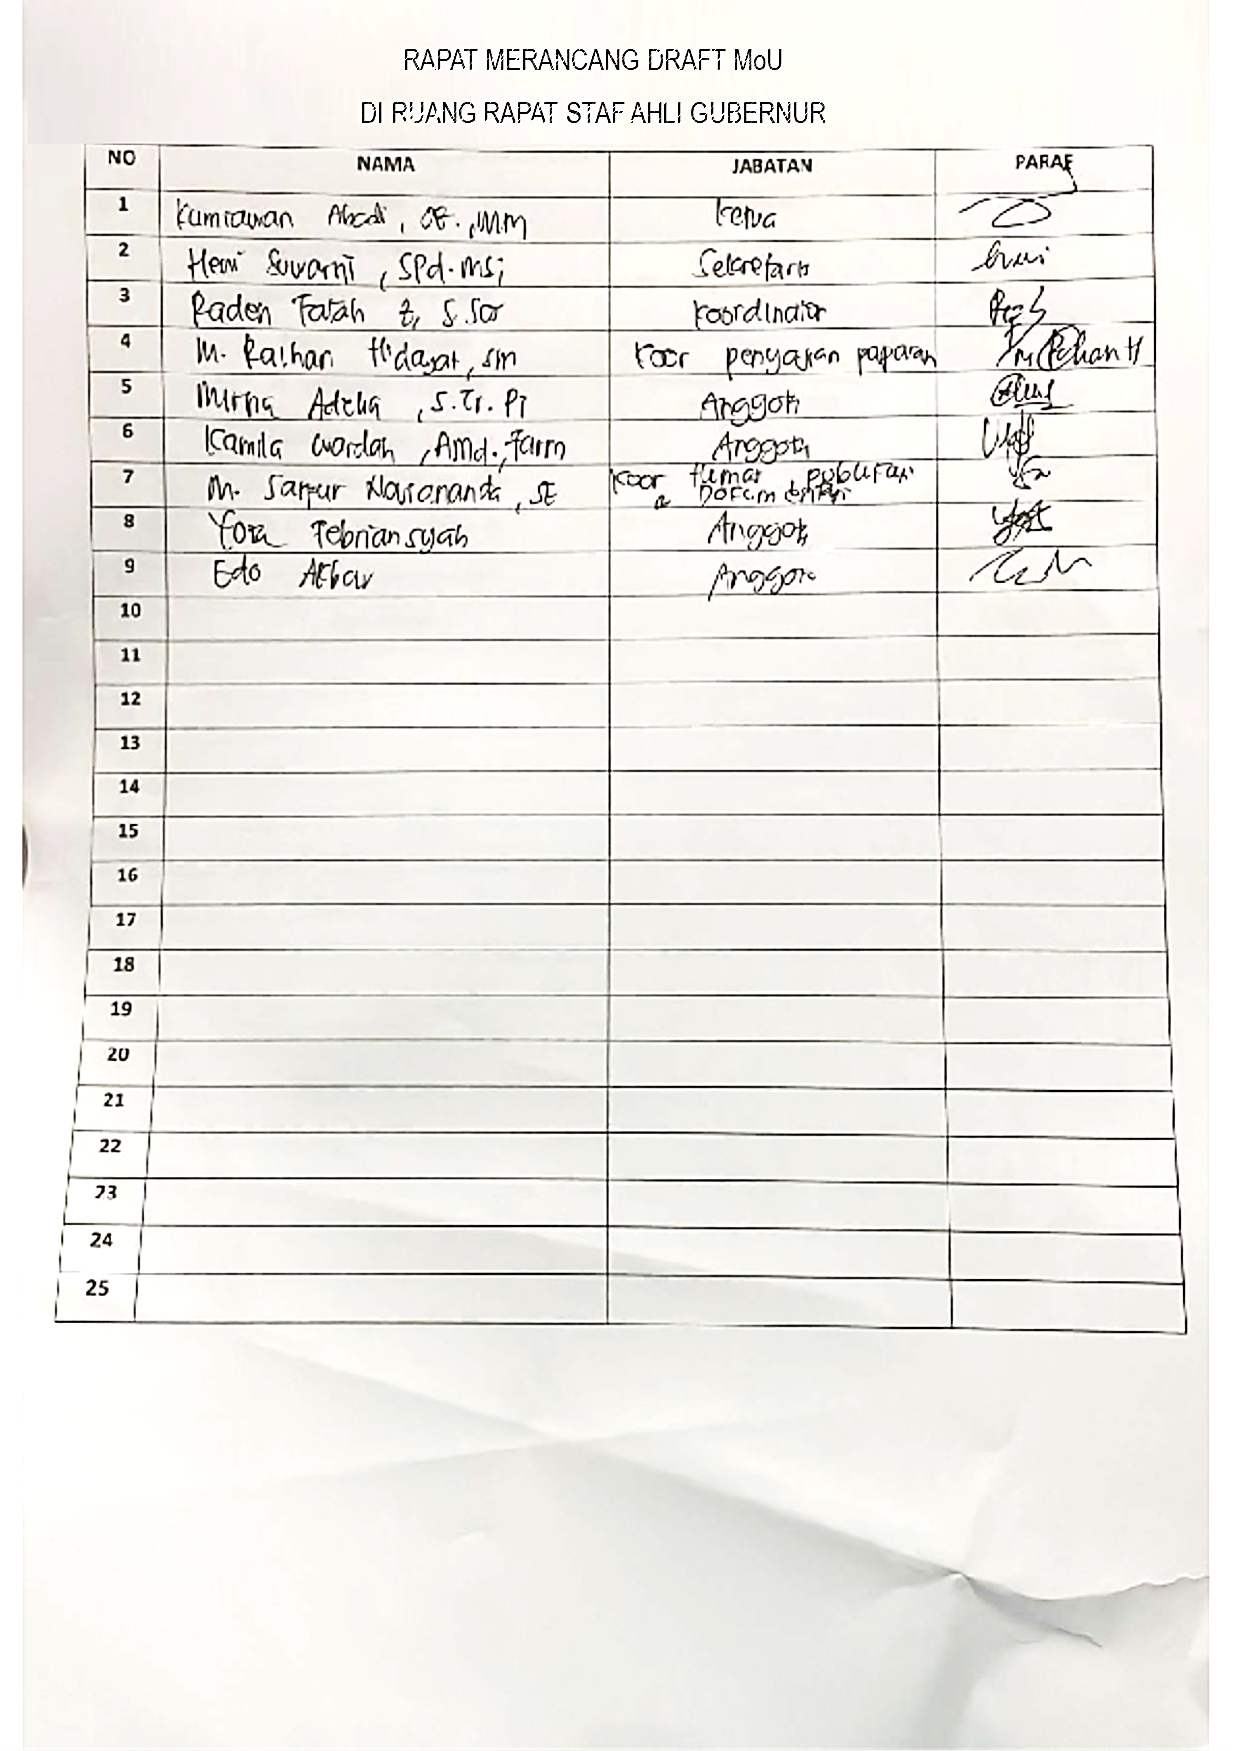 RAPAT MERANCANG DRAFT MoU
DI RUANG RAPAT STAF AHLI GUBERNUR
NO NAMA JABATAN PARAF
1 Kurniawan Abadi, SE., MM Ketua
2 Heni Suwarni, SPd. MSi Sekretaris
3 Raden Fatah Z, S.Sos Koordinator
4 M. Raihan Hidayat, SM Koor penyajian paparan
5 Mirna Adelia, S.Tr.Pi Anggota
6 Kamila Wardah, AMd., Farm Anggota
7 M. Saipur, SE Koor Humas publikasi
& Dokumentasi
8 Yoza Febriansyah Anggota
9 Edo Akbar Anggota
10
11
12
13
14
15
16
17
18
19
20
21
22
23
24
25